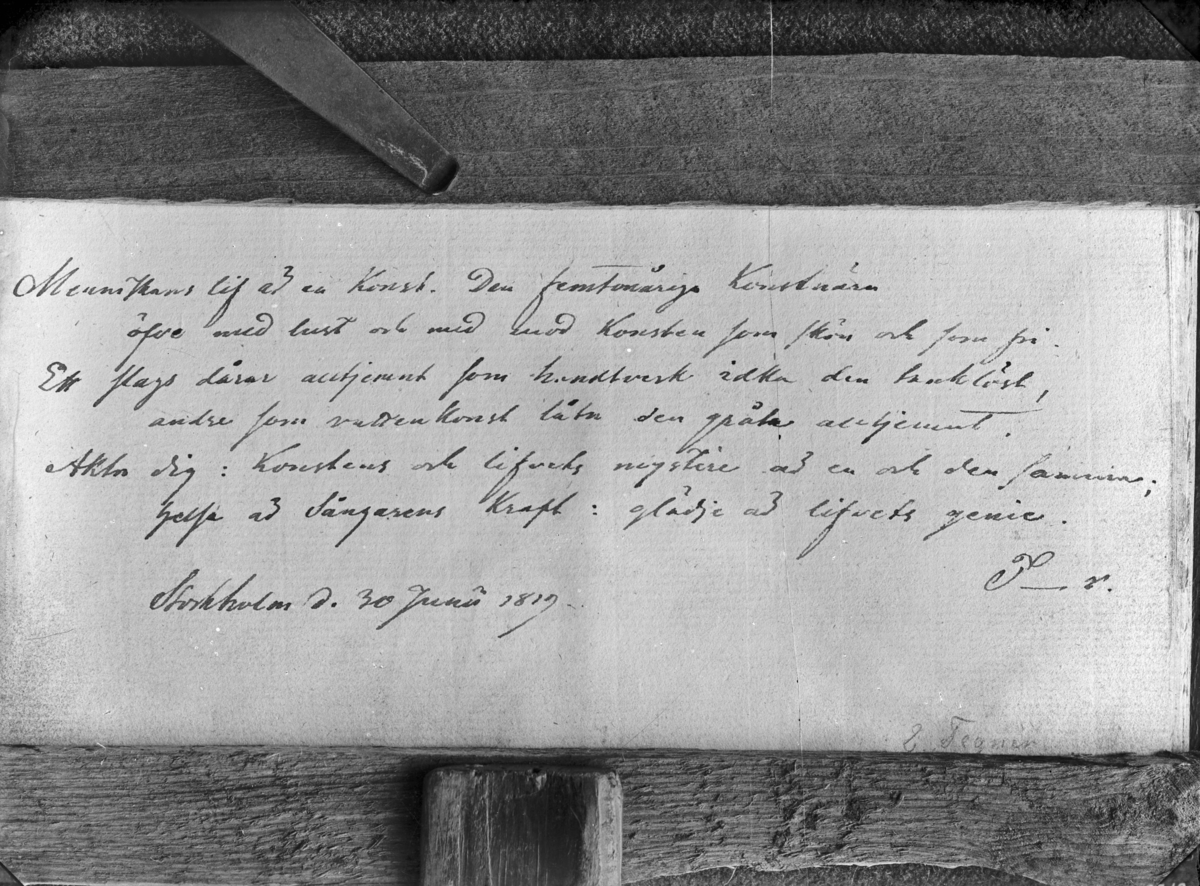 Menniskans lif är en Konst. Den femtonåriga Konstnärn
öfve med lust och med mod Konsten som skön och som fri.
Ett slags dårar alltjemnt som handtverk idka den tanklöst,
andre som vattenkonst låta den gråta alltjemnt.
Akta dig: Konstens och lifvets mystère är en och den samma;
helsa är Sångarens Kraft: glädje är lifvets genie.
Stockholm d. 30 Junii 1819
T—r.
E. Tegnér